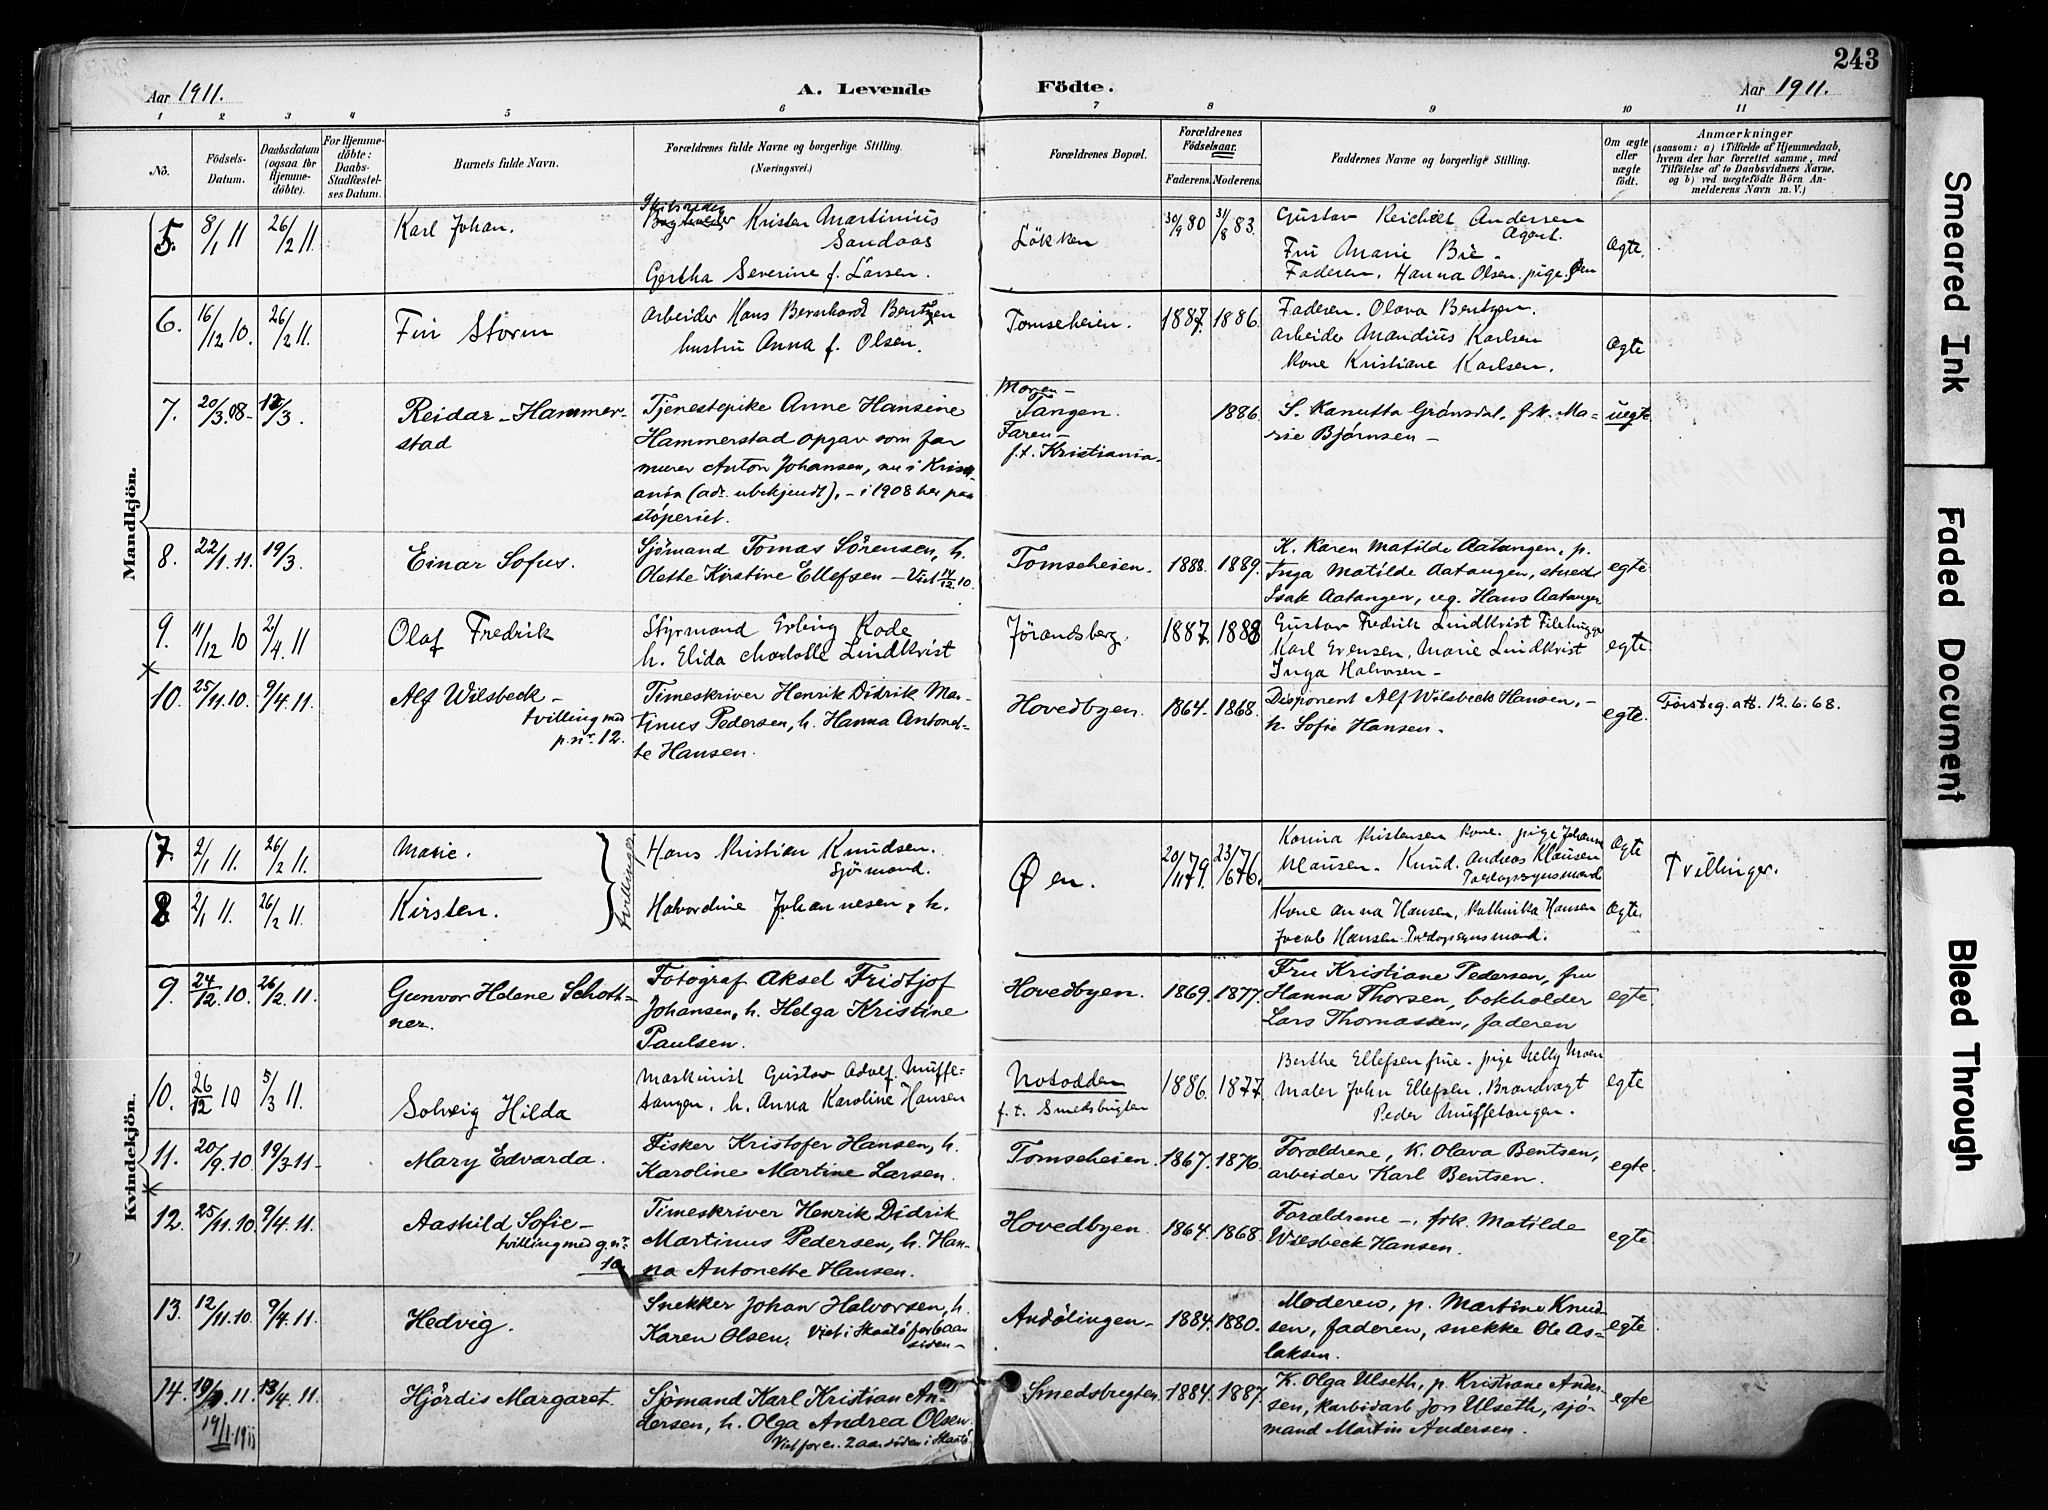 243
Aar 1911.
A. Levende
Födte.
Aar 1911.
1 2 3 4 5 6 7 8 9 10 11
No.
Födsels-
Datum.
Daabsdatum
(ogsaa for
Hjemme-
döbte).
For Hjemme-
döbte:
Daabs-
Stadfæstel-
ses Datum.
Barnets fulde Navn.
Forældrenes fulde Navne og borgerlige Stilling.
(Næringsvei.)
Forældrenes Bopæl.
Forældrenes
Födselsaar.
Faderens. Moderens.
Faddernes Navne og borgerlige Stilling.
Om ægte
eller
uægte
født.
Anmærkninger
(saasom: a) i Tilfælde af Hjemmedaab,
hvem der har forrettet samme, med
Tilföielse af to Daabsvidners Navne,
og b) ved uægtefödte Börn An-
melderens Navn m. V.)
Mandkjön.
5. 8/1 11 26/2 11. Karl Johan.
Skibsreder
Kristen Martinius
Sandaas
Gertha Severine f. Larsen.
Lökken 30/9 80 31/8 83.
Gustav Reichelt Andersen
Agent.
Fru Marie Bie.
Faderen. Hanna Olsen. pige. Øen
Ægte.
6. 16/12 10. 26/2 11. Finn Storm
Arbeider Hans Bernhardt Bentzen
hustru Anna f. Olsen.
Tomseheien. 1887. 1886.
Faderen. Olava Bentzen.
arbeider Mandius Karlsen
Kone Kristiane Karlsen.
Ægte
7. 20/3.08- 12/3. Reidar - Hammer-
stad
Tjenestepike Anne Hansine
Hammerstad opgav som far
murer Anton Johansen, nu i Kristi-
ania (adr. ubekjendt), - i 1908 her paa
støperiet.
Moren -
Tangen.
Faren -
f.t. Kristiania.
1886.
S. Kanutta Grønsdal, frk. Ma-
rie Bjørnsen -
uegte
8. 22/1.11. 19/3. Einar Sofus.
Sjömand Tomas Sörensen, h.
Olette Kirstine Ellefsen - Viet 17/12.10.
Tomseheien. 1888. 1889.
K. Karen Matilde Aatangen, p.
Inga Matilde Aatangen, stuert
Isak Aatangen, ug. Hans Aatangen
egte
9. 11/12 10 2/4.11 Olaf Fredrik
Styrmand Erling Kode
h. Elida Charlotte Lindkvist
Jørandsberg. 1887. 1888
Gustav Fredrik Lindkvist Filehugger
Karl Evensen, Marie Lindkvist
Inga Halvorsen -
egte
10. 25/11.10. 9/4.11. Alf Wilsbeck -
tvilling med
p.nr. 12.
Timeskriver Henrik Didrik Mar-
tinus Pedersen, h. Hanna Antonet-
te Hansen.
Hovedbyen. 1864. 1868.
Disponent Alf Wilsbeck Hansen, -
h. Sofie Hansen.
egte. Första g. att. 12.6.68.
Kvindekjön.
7. 2/1 11. 26/2 11. Marie.
tvillinger
Hans Kristian Knudsen.
Sjömand.
Øen. 20/11 79. 23/6 76.
Kanina Kristensen Kone. pige Johanne
Klausen. Knud Andreas Klausen
Ægte Tvillinger.
8. 2/1 11. 26/2 11. Kirsten.
Halvordine Johannesen, h.
Kone Anna Hansen, Kathinka Hansen
Jacob Hansen
Ægte.
9. 24/12.10. 26/2.11. Gunvor Helene Schott-
ner.
Fotograf Aksel Fridtjof
Johansen, h. Helga Kristine
Paulsen.
Hovedbyen. 1869. 1877.
Fru Kristiane Pedersen, fru
Hanna Thorsen, bokholder
Lars Thomassen, faderen
egte.
10. 26/12 10 5/3 11. Solveig Hilda
Maskinist Gustav Adolf Muffe-
tangen. h. Anna Karoline Hansen
Notodden
f.t. Smedsbugten
1886. 1877.
Berthe Ellefsen frue. pige Nelly Moen
Maler John Ellefsen. Brandvagt
Peder Muffetangen.
egte
11. 20/9.10. 19/3.11- Mary Edvarda.
Fisker Kristofer Hansen, h.
Karoline Martine Larsen.
Tomseheien. 1867. 1876.
Forældrene, K. Olava Bentsen,
arbeider Karl Bentsen.
egte.
12. 25/11.10. 9/4.11. Aashild Sofie -
tvilling med g.nr.
10
Timeskriver Henrik Didrik
Martinus Pedersen, h. Han-
na Antonette Hansen.
Hovedbyen. 1864. 1868.
Forældrene -, frk. Matilde
Wilsbeck Hansen.
egte
13. 12/11.10. 9/4.11. Hedvig.
Snekker Johan Halvorsen, h.
Karen Olsen. Viet i Skaatö for 6 aar
siden -
Andölingen - 1884. 1880.
Moderen, p. Martine Knud-
sen, faderen, snekke Ole As-
laksen.
egte.
14. 11. 13/4.11. Hjördis Margaret.
19/1 1911
Sjömand Karl Kristian An-
dersen, h. Olga Andrea Olsen.
Viet for ca. 2 aar siden i Skaatö.
Smedsbugten. 1884. 1887.
K. Olga Ulseth, p. Kristiane Ander-
sen, karbidarb. Jörs Ulseth, sjø-
mand Martin Andersen.
egte
Smeared Ink
Faded Document
Bleed Through